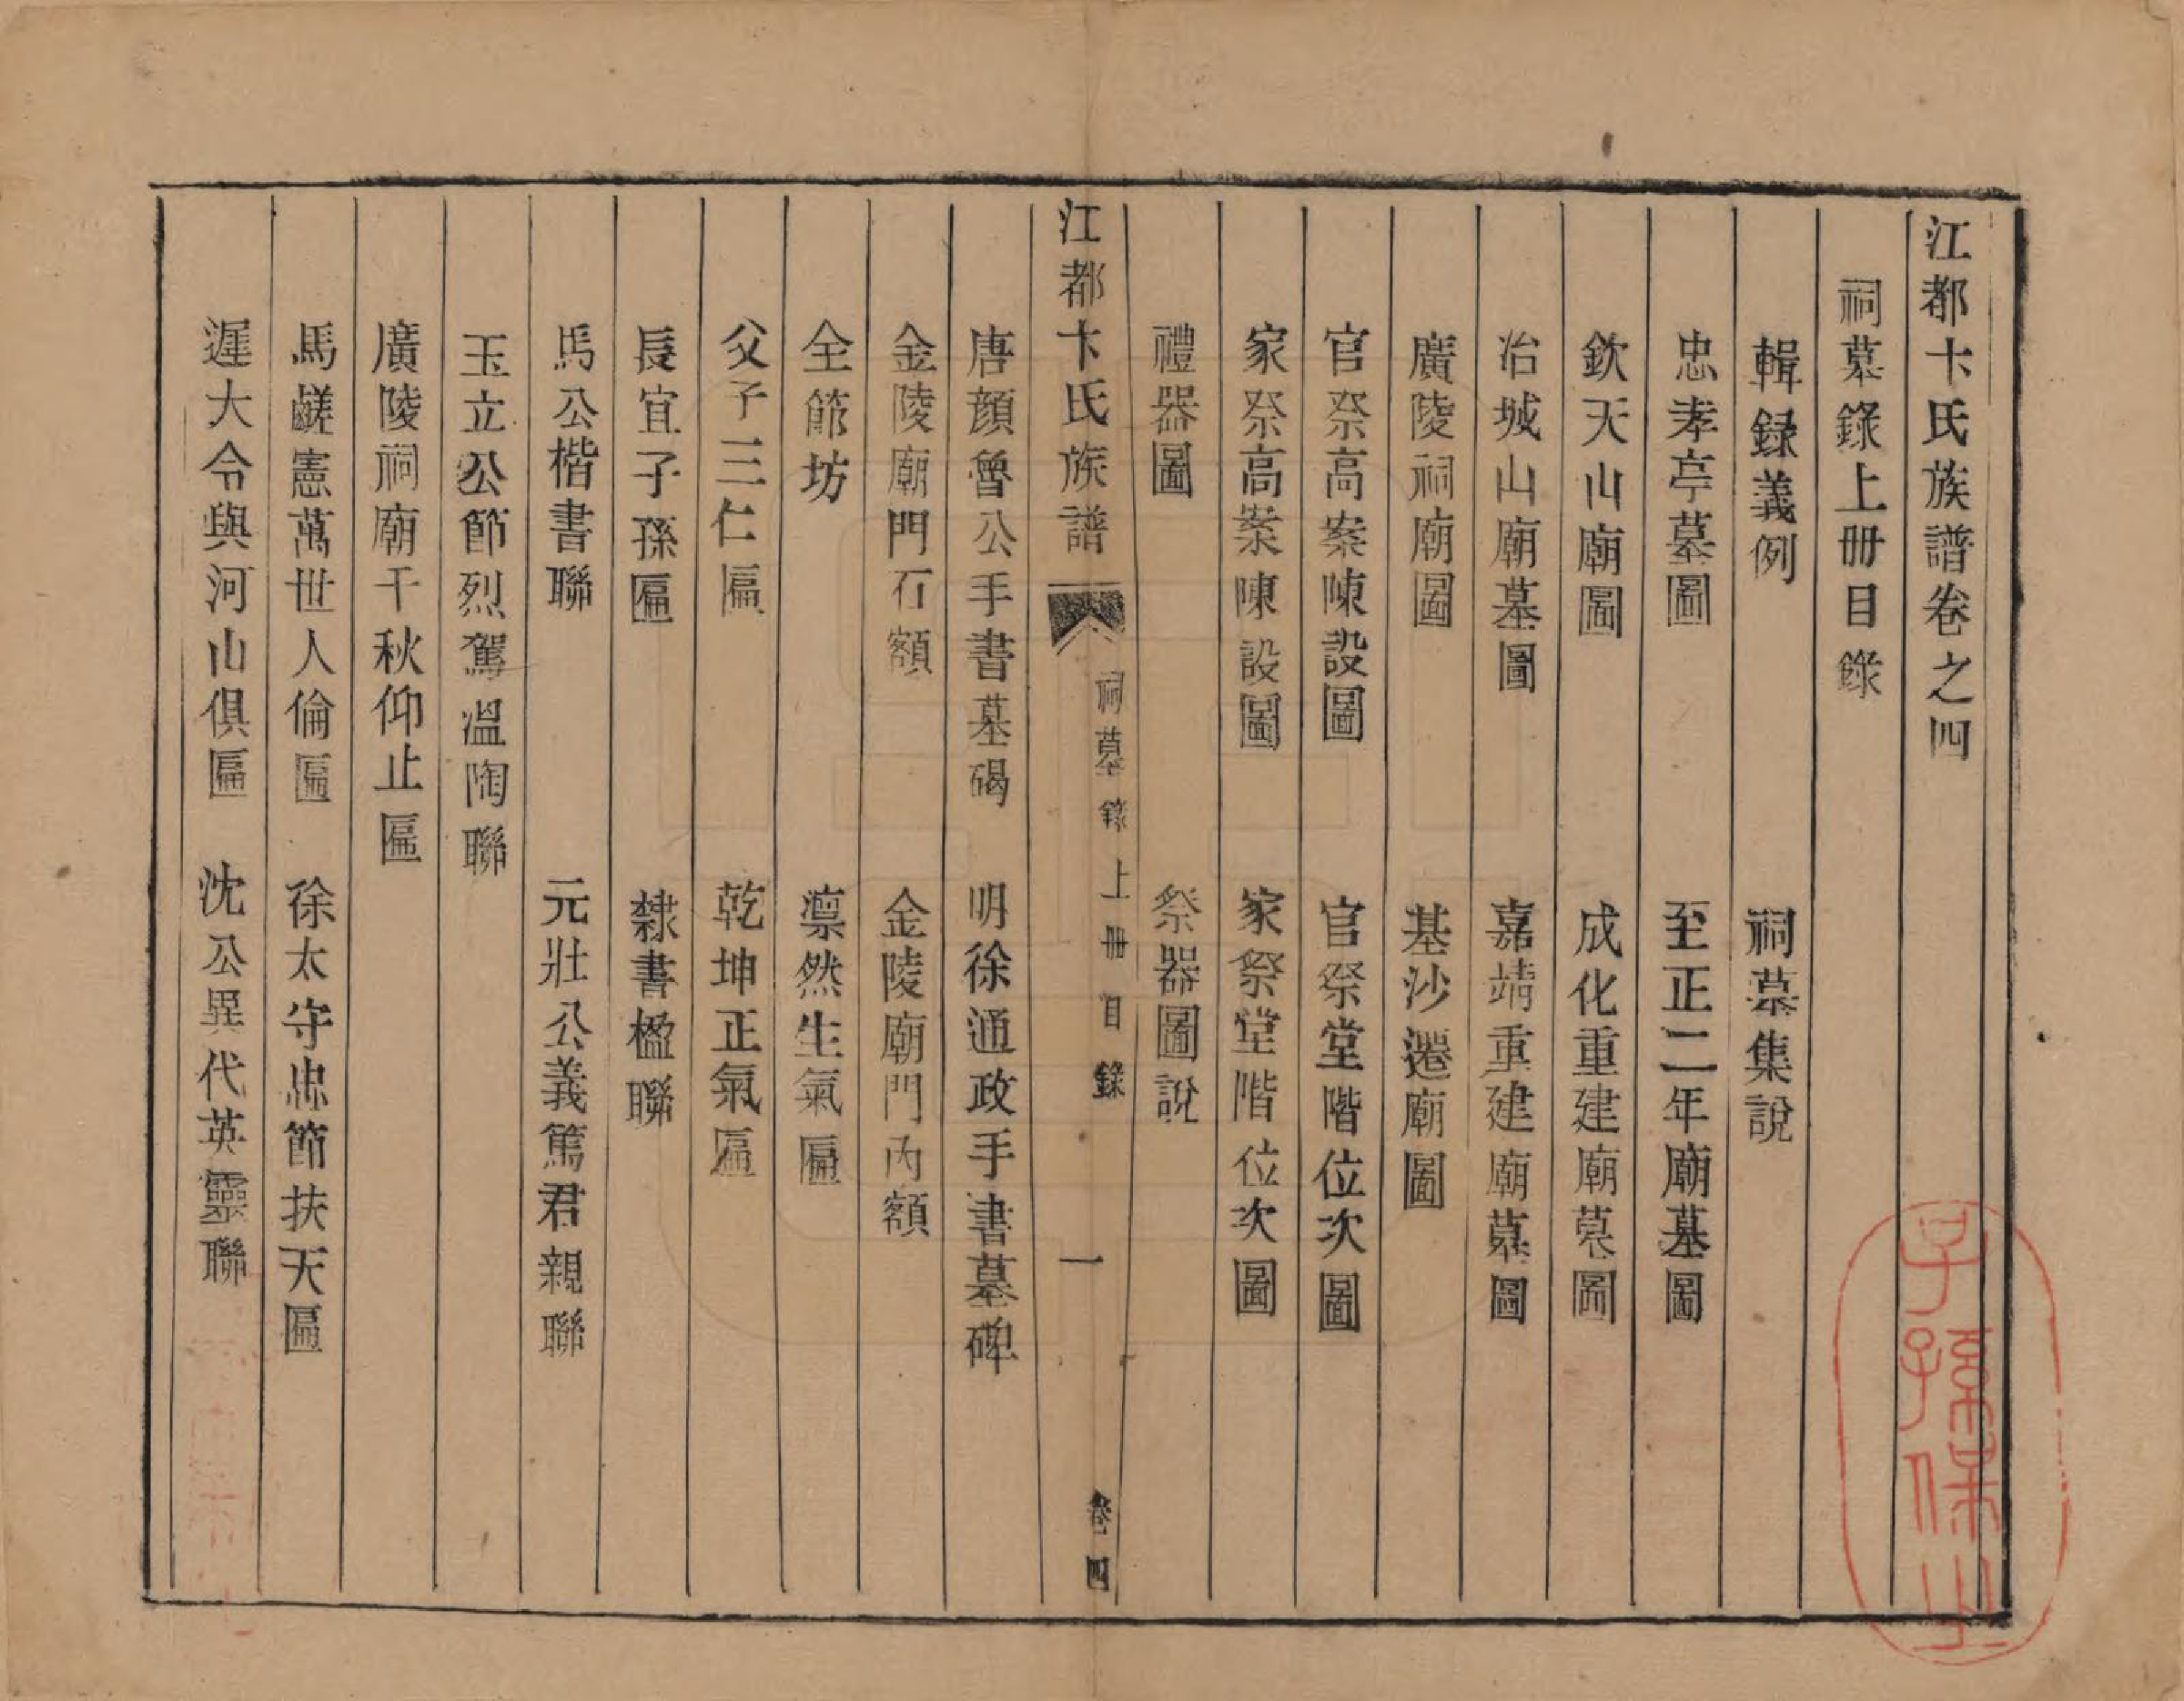 江都卞氏族譜卷之四
祠墓錄上冊目錄
輯録義例 祠墓集說
忠孝亭墓圖 至正二年廟墓圖
欽天山廟圖 成化重建廟墓圖
冶城山廟墓圖 嘉靖重建廟墓圖
廣陵祠廟圖 基沙遷廟圖
官祭高案陳設圖 官祭堂階位次圖
家祭高案陳設圖 家祭堂階位次圖
禮器圖 祭器圖說
江都卞氏族譜 祠墓錄上冊目錄 一 卷四
唐顔魯公手書墓碣 明徐通政手書墓碑
金陵廟門石額 金陵廟門內額
全節坊 凛然生氣匾
父子三仁匾 乾坤正氣匾
長宜子孫匾 隸書楹聯
馬公楷書聯 元壯公義篤君親聯
玉立公節烈駕溫陶聯
廣陵祠廟千秋仰止匾
馬鹺憲萬世人倫匾 徐太守忠節扶天匾
遲大令與河山俱匾 沈公異代英靈聯
子孫保之